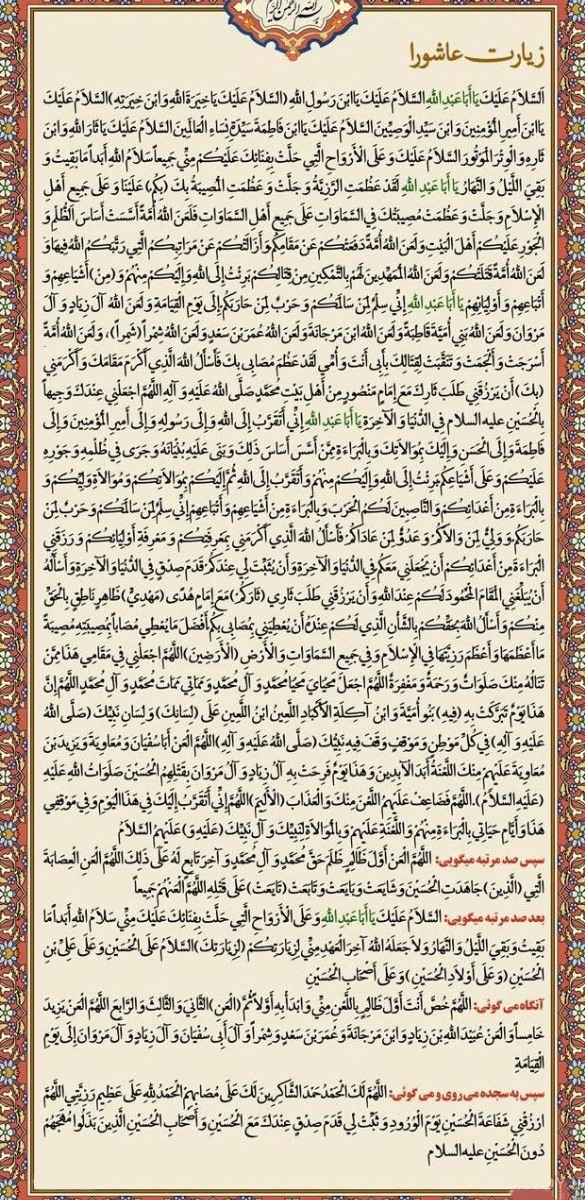 بسم الله الرحمن الرحیم
زیارت عاشورا
اَلسَّلَامُ عَلَيْكَ يَا أَبَا عَبْدِ اللَّهِ السَّلَامُ عَلَيْكَ يَا ابْنَ رَسُولِ اللَّهِ (السَّلَامُ عَلَيْكَ يَا خِيَرَةَ اللَّهِ وَ ابْنَ خِيَرَتِهِ) السَّلَامُ عَلَيْكَ
يَا ابْنَ أَمِيرِ الْمُؤْمِنِينَ وَ ابْنَ سَيِّدِ الْوَصِيِّينَ السَّلَامُ عَلَيْكَ يَا ابْنَ فَاطِمَةَ سَيِّدَةِ نِسَاءِ الْعَالَمِينَ السَّلَامُ عَلَيْكَ يَا ثَارَ اللَّهِ وَ ابْنَ
ثَارِهِ وَ الْوِتْرَ الْمَوْتُورَ السَّلَامُ عَلَيْكَ وَ عَلَى الْأَرْوَاحِ الَّتِي حَلَّتْ بِفِنَائِكَ عَلَيْكُمْ مِنِّي جَمِيعاً سَلَامُ اللَّهِ أَبَداً مَا بَقِيتُ وَ
بَقِيَ اللَّيْلُ وَ النَّهَارُ يَا أَبَا عَبْدِ اللَّهِ لَقَدْ عَظُمَتِ الرَّزِيَّةُ وَ جَلَّتْ وَ عَظُمَتِ الْمُصِيبَةُ بِكَ (بِكُمْ) عَلَيْنَا وَ عَلَى جَمِيعِ أَهْلِ
الْإِسْلَامِ وَ جَلَّتْ وَ عَظُمَتْ مُصِيبَتُكَ فِي السَّمَاوَاتِ عَلَى جَمِيعِ أَهْلِ السَّمَاوَاتِ فَلَعَنَ اللَّهُ أُمَّةً أَسَّسَتْ أَسَاسَ الظُّلْمِ وَ
الْجَوْرِ عَلَيْكُمْ أَهْلَ الْبَيْتِ وَ لَعَنَ اللَّهُ أُمَّةً دَفَعَتْكُمْ عَنْ مَقَامِكُمْ وَ أَزَالَتْكُمْ عَنْ مَرَاتِبِكُمُ الَّتِي رَتَّبَكُمُ اللَّهُ فِيهَا وَ
لَعَنَ اللَّهُ أُمَّةً قَتَلَتْكُمْ وَ لَعَنَ اللَّهُ الْمُمَهِّدِينَ لَهُمْ بِالتَّمْكِينِ مِنْ قِتَالِكُمْ بَرِئْتُ إِلَى اللَّهِ وَ إِلَيْكُمْ مِنْهُمْ وَ (مِنْ) أَشْيَاعِهِمْ وَ
أَتْبَاعِهِمْ وَ أَوْلِيَائِهِمْ يَا أَبَا عَبْدِ اللَّهِ إِنِّي سِلْمٌ لِمَنْ سَالَمَكُمْ وَ حَرْبٌ لِمَنْ حَارَبَكُمْ إِلَى يَوْمِ الْقِيَامَةِ وَ لَعَنَ اللَّهُ آلَ زِيَادٍ وَ آلَ
مَرْوَانَ وَ لَعَنَ اللَّهُ بَنِي أُمَيَّةَ قَاطِبَةً وَ لَعَنَ اللَّهُ ابْنَ مَرْجَانَةَ وَ لَعَنَ اللَّهُ عُمَرَ بْنَ سَعْدٍ وَ لَعَنَ اللَّهُ شِمْراً (شَمِراً)، وَ لَعَنَ اللَّهُ أُمَّةً
أَسْرَجَتْ وَ أَلْجَمَتْ وَ تَنَقَّبَتْ لِقِتَالِكَ بِأَبِي أَنْتَ وَ أُمِّي لَقَدْ عَظُمَ مُصَابِي بِكَ فَأَسْأَلُ اللَّهَ الَّذِي أَكْرَمَ مَقَامَكَ وَ أَكْرَمَنِي
(بِكَ) أَنْ يَرْزُقَنِي طَلَبَ ثَارِكَ مَعَ إِمَامٍ مَنْصُورٍ مِنْ أَهْلِ بَيْتِ مُحَمَّدٍ صَلَّى اللَّهُ عَلَيْهِ وَ آلِهِ اللَّهُمَّ اجْعَلْنِي عِنْدَكَ وَجِيهاً
بِالْحُسَيْنِ علیه السلام فِي الدُّنْيَا وَ الْآخِرَةِ يَا أَبَا عَبْدِ اللَّهِ إِنِّي أَتَقَرَّبُ إِلَى اللَّهِ وَ إِلَى رَسُولِهِ وَ إِلَى أَمِيرِ الْمُؤْمِنِينَ وَ إِلَى
فَاطِمَةَ وَ إِلَى الْحَسَنِ وَ إِلَيْكَ بِمُوَالاتِكَ وَ بِالْبَرَاءَةِ مِمَّنْ أَسَّسَ أَسَاسَ ذَلِكَ وَ بَنَى عَلَيْهِ بُنْيَانَهُ وَ جَرَى فِي ظُلْمِهِ وَ جَوْرِهِ
عَلَيْكُمْ وَ عَلَى أَشْيَاعِكُمْ بَرِئْتُ إِلَى اللَّهِ وَ إِلَيْكُمْ مِنْهُمْ وَ أَتَقَرَّبُ إِلَى اللَّهِ ثُمَّ إِلَيْكُمْ بِمُوَالاتِكُمْ وَ مُوَالاةِ وَلِيِّكُمْ وَ
بِالْبَرَاءَةِ مِنْ أَعْدَائِكُمْ وَ النَّاصِبِينَ لَكُمُ الْحَرْبَ وَ بِالْبَرَاءَةِ مِنْ أَشْيَاعِهِمْ وَ أَتْبَاعِهِمْ إِنِّي سِلْمٌ لِمَنْ سَالَمَكُمْ وَ حَرْبٌ لِمَنْ
حَارَبَكُمْ وَ وَلِيٌّ لِمَنْ وَالاكُمْ وَ عَدُوٌّ لِمَنْ عَادَاكُمْ فَأَسْأَلُ اللَّهَ الَّذِي أَكْرَمَنِي بِمَعْرِفَتِكُمْ وَ مَعْرِفَةِ أَوْلِيَائِكُمْ وَ رَزَقَنِي
الْبَرَاءَةَ مِنْ أَعْدَائِكُمْ أَنْ يَجْعَلَنِي مَعَكُمْ فِي الدُّنْيَا وَ الْآخِرَةِ وَ أَنْ يُثَبِّتَ لِي عِنْدَكُمْ قَدَمَ صِدْقٍ فِي الدُّنْيَا وَ الْآخِرَةِ وَ أَسْأَلُهُ
أَنْ يُبَلِّغَنِي الْمَقَامَ الْمَحْمُودَ لَكُمْ عِنْدَ اللَّهِ وَ أَنْ يَرْزُقَنِي طَلَبَ ثَارِي (ثَارِكُمْ) مَعَ إِمَامٍ هُدًى (مَهْدِيٍّ) ظَاهِرٍ نَاطِقٍ بِالْحَقِّ
مِنْكُمْ وَ أَسْأَلُ اللَّهَ بِحَقِّكُمْ وَ بِالشَّأْنِ الَّذِي لَكُمْ عِنْدَهُ أَنْ يُعْطِيَنِي بِمُصَابِي بِكُمْ أَفْضَلَ مَا يُعْطِي مُصَاباً بِمُصِيبَتِهِ مُصِيبَةً
مَا أَعْظَمَهَا وَ أَعْظَمَ رَزِيَّتَهَا فِي الْإِسْلَامِ وَ فِي جَمِيعِ السَّمَاوَاتِ وَ الْأَرْضِ (الْأَرَضِينَ) اللَّهُمَّ اجْعَلْنِي فِي مَقَامِي هَذَا مِمَّنْ
تَنَالُهُ مِنْكَ صَلَوَاتٌ وَ رَحْمَةٌ وَ مَغْفِرَةٌ اللَّهُمَّ اجْعَلْ مَحْيَايَ مَحْيَا مُحَمَّدٍ وَ آلِ مُحَمَّدٍ وَ مَمَاتِي مَمَاتَ مُحَمَّدٍ وَ آلِ مُحَمَّدٍ اللَّهُمَّ إِنَّ
هَذَا يَوْمٌ تَبَرَّكَتْ بِهِ (فِيهِ) بَنُو أُمَيَّةَ وَ ابْنُ آكِلَةِ الْأَكْبَادِ اللَّعِينُ ابْنُ اللَّعِينِ عَلَى (لِسَانِكَ) وَ لِسَانِ نَبِيِّكَ (صَلَّى اللَّهُ
عَلَيْهِ وَ آلِهِ) فِي كُلِّ مَوْطِنٍ وَ مَوْقِفٍ وَقَفَ فِيهِ نَبِيُّكَ (صَلَّى اللَّهُ عَلَيْهِ وَ آلِهِ) اللَّهُمَّ الْعَنْ أَبَا سُفْيَانَ وَ مُعَاوِيَةَ وَ يَزِيدَ بْنَ
مُعَاوِيَةَ عَلَيْهِمْ مِنْكَ اللَّعْنَةُ أَبَدَ الْآبِدِينَ وَ هَذَا يَوْمٌ فَرِحَتْ بِهِ آلُ زِيَادٍ وَ آلُ مَرْوَانَ بِقَتْلِهِمُ الْحُسَيْنَ صَلَوَاتُ اللَّهِ عَلَيْهِ
(عَلَيْهِ السَّلَامُ). اللَّهُمَّ فَضَاعِفْ عَلَيْهِمُ اللَّعْنَ مِنْكَ وَ الْعَذَابَ (الْأَلِيمَ) اللَّهُمَّ إِنِّي أَتَقَرَّبُ إِلَيْكَ فِي هَذَا الْيَوْمِ وَ فِي مَوْقِفِي
هَذَا وَ أَيَّامِ حَيَاتِي بِالْبَرَاءَةِ مِنْهُمْ وَ اللَّعْنَةِ عَلَيْهِمْ وَ بِالْمُوَالاةِ لِنَبِيِّكَ وَ آلِ نَبِيِّكَ (عَلَيْهِ وَ) عَلَيْهِمُ السَّلَامُ
سپس صد مرتبه میگویی: اللَّهُمَّ الْعَنْ أَوَّلَ ظَالِمٍ ظَلَمَ حَقَّ مُحَمَّدٍ وَ آلِ مُحَمَّدٍ وَ آخِرَ تَابِعٍ لَهُ عَلَى ذَلِكَ اللَّهُمَّ الْعَنِ الْعِصَابَةَ
الَّتِي (الَّذِينَ) جَاهَدَتِ الْحُسَيْنَ وَ شَايَعَتْ وَ بَايَعَتْ وَ تَابَعَتْ (تَايَعَتْ) عَلَى قَتْلِهِ اللَّهُمَّ الْعَنْهُمْ جَمِيعاً
بعد صد مرتبه میگویی: السَّلَامُ عَلَيْكَ يَا أَبَا عَبْدِ اللَّهِ وَ عَلَى الْأَرْوَاحِ الَّتِي حَلَّتْ بِفِنَائِكَ عَلَيْكَ مِنِّي سَلَامُ اللَّهِ أَبَداً مَا
بَقِيتُ وَ بَقِيَ اللَّيْلُ وَ النَّهَارُ وَ لا جَعَلَهُ اللَّهُ آخِرَ الْعَهْدِ مِنِّي لِزِيَارَتِكُمْ (لِزِيَارَتِكَ) السَّلَامُ عَلَى الْحُسَيْنِ وَ عَلَى عَلِيِّ بْنِ
الْحُسَيْنِ (وَ عَلَى أَوْلَادِ الْحُسَيْنِ) وَ عَلَى أَصْحَابِ الْحُسَيْنِ
آنگاه می گوئی: اللَّهُمَّ خُصَّ أَنْتَ أَوَّلَ ظَالِمٍ بِاللَّعْنِ مِنِّي وَ ابْدَأْ بِهِ أَوَّلاً ثُمَّ (الْعَنِ) الثَّانِيَ وَ الثَّالِثَ وَ الرَّابِعَ اللَّهُمَّ الْعَنْ يَزِيدَ
خَامِساً وَ الْعَنْ عُبَيْدَ اللَّهِ بْنَ زِيَادٍ وَ ابْنَ مَرْجَانَةَ وَ عُمَرَ بْنَ سَعْدٍ وَ شِمْراً وَ آلَ أَبِي سُفْيَانَ وَ آلَ زِيَادٍ وَ آلَ مَرْوَانَ إِلَى يَوْمِ
الْقِيَامَةِ
سپس به سجده می روی و می گوئی: اللَّهُمَّ لَكَ الْحَمْدُ حَمْدَ الشَّاكِرِينَ لَكَ عَلَى مُصَابِهِمْ الْحَمْدُ لِلَّهِ عَلَى عَظِيمِ رَزِيَّتِي اللَّهُمَّ
ارْزُقْنِي شَفَاعَةَ الْحُسَيْنِ يَوْمَ الْوُرُودِ وَ ثَبِّتْ لِي قَدَمَ صِدْقٍ عِنْدَكَ مَعَ الْحُسَيْنِ وَ أَصْحَابِ الْحُسَيْنِ الَّذِينَ بَذَلُوا مُهَجَهُمْ
دُونَ الْحُسَيْنِ علیه السلام